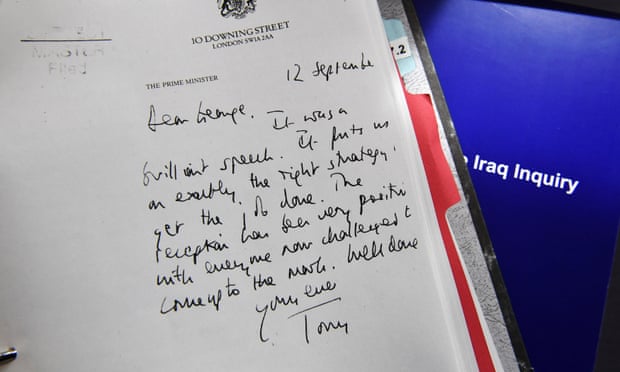 10 DOWNING STREET
LONDON SW1A 2AA
THE PRIME MINISTER
12 September
Dear George,
It was a
brilliant speech. It puts us
on exactly the right strategy to
get the job done. The
reception has been very positive
with everyone now challenged to
come up to the mark. Well done
Yours ever
Tony
7.2
Iraq Inquiry